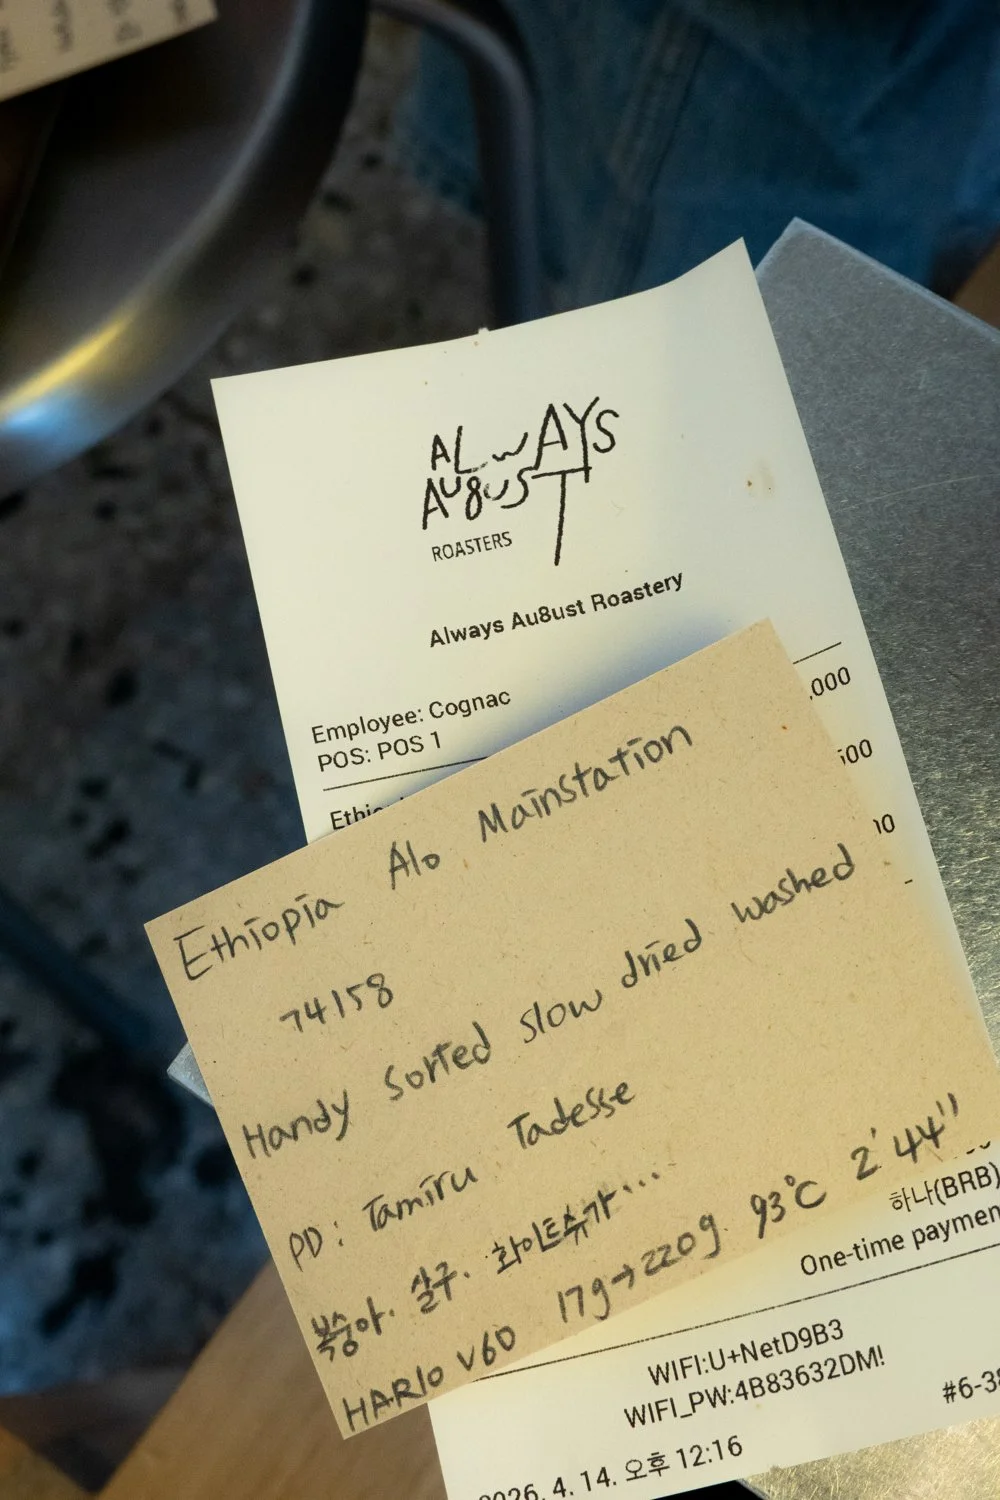 ALWAYS
AU8UST
ROASTERS
Always Au8ust Roastery
Employee: Cognac
POS: POS 1
,000
Ethiopia Alo Mainstation
74158
Handy sorted slow dried washed
PD: Tamiru Tadesse
복숭아. 살구. 화이트슈가...
HARIO V60 17g→220g 93°C 2'44"
하나(BRB)
One-time paymen
WIFI:U+NetD9B3
WIFI_PW:4B83632DM!
#6-38
2026. 4. 14. 오후 12:16